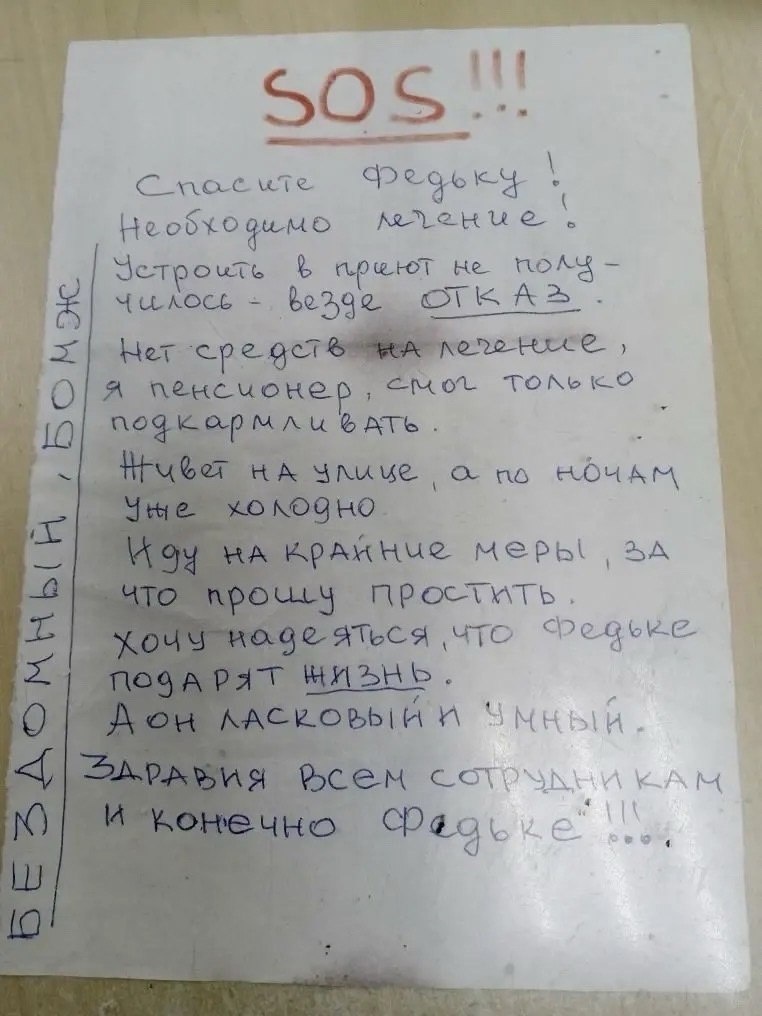 SOS!!!
Спасите Федьку!
Необходимо лечение!
Устроить в приют не полу-
чилось - везде ОТКАЗ.
Нет средств на лечение,
я пенсионер, смог только
подкармливать.
Живет на улице, а по ночам
уже холодно
Иду на крайние меры, за
что прошу простить.
Хочу надеяться, что Федьке
подарят жизнь.
А он ласковый и умный.
Здравия всем сотрудникам
и конечно Федьке!!!
БЕЗДОМНЫЙ, БОМЖ